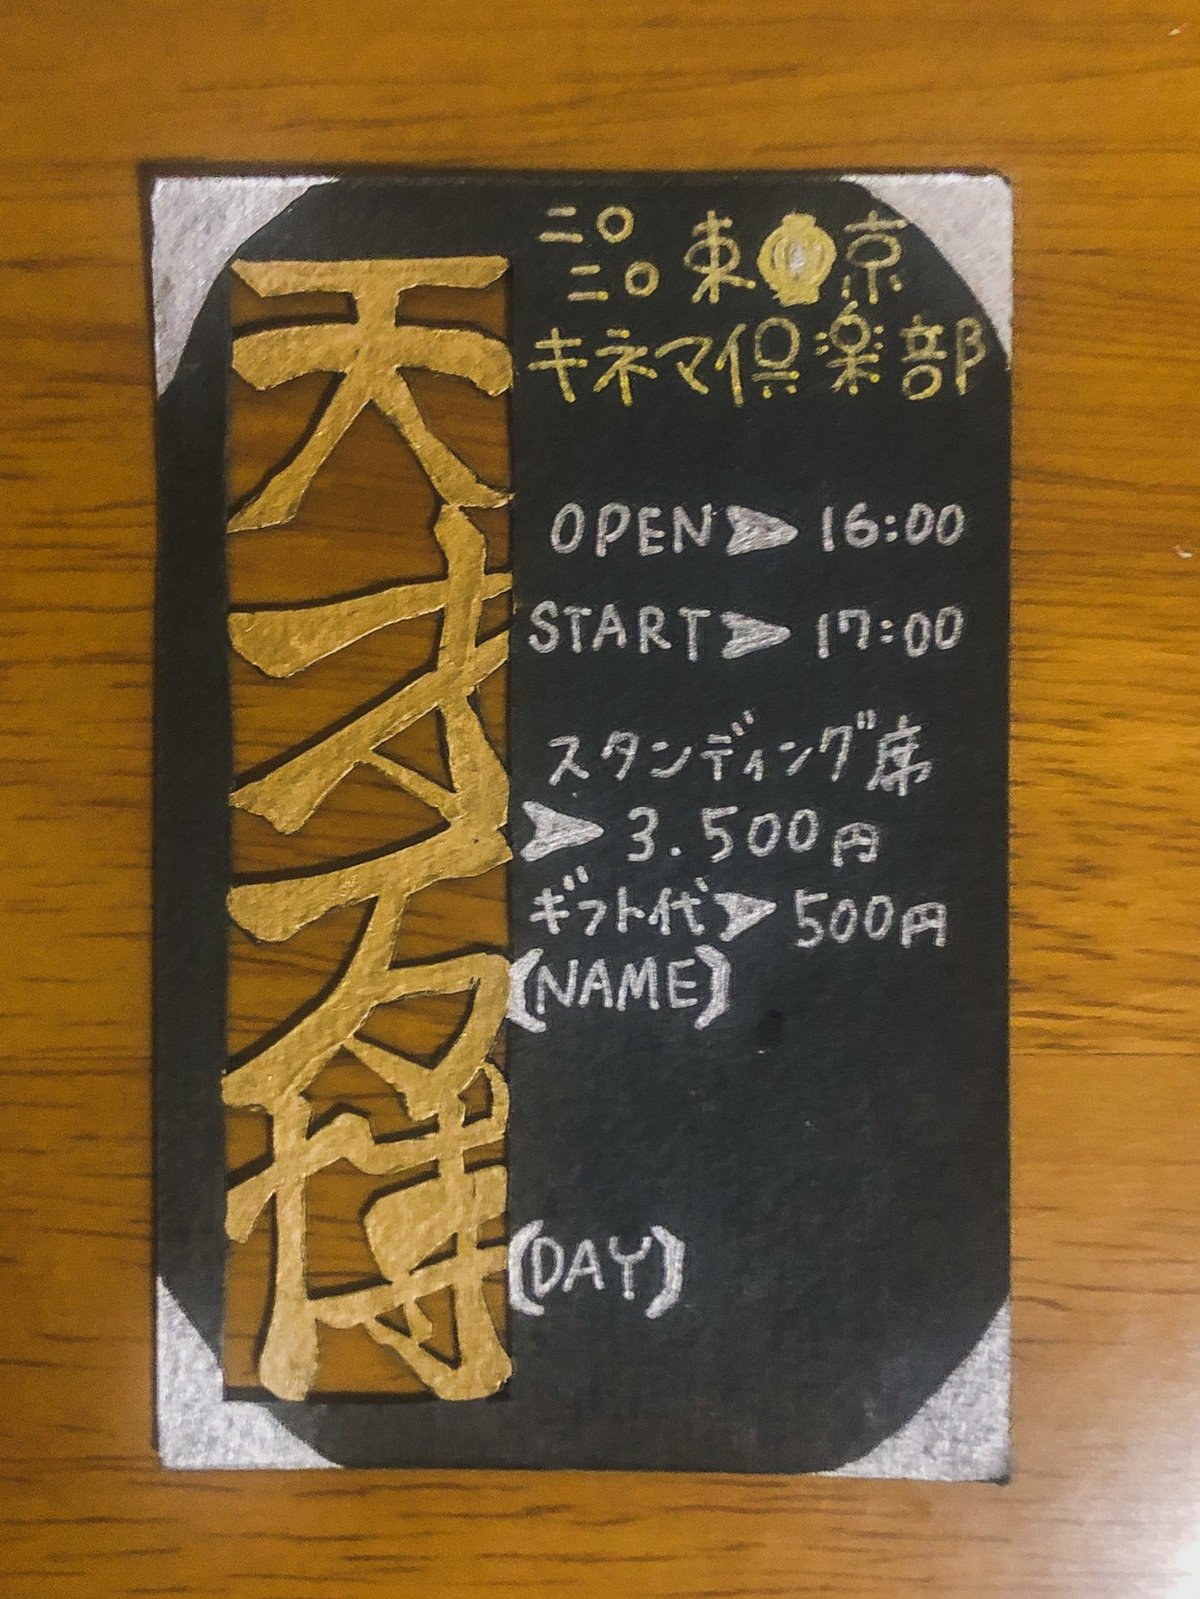 天才万博
二〇
二〇 東京
キネマ倶楽部
OPEN➤16:00
START➤17:00
スタンディング席
➤3.500円
ギフト代➤500円
【NAME】
【DAY】